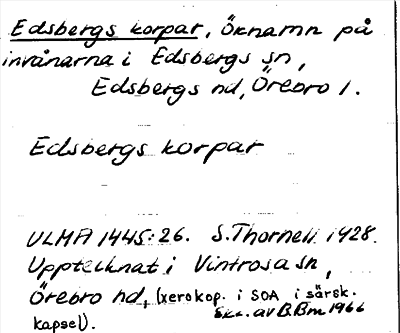 Edsbergs korpar, Öknamn på
invånarna i Edsbergs sn,
Edsbergs hd, Örebro l.
Edsbergs korpar
ULMA 1445:26. S. Thornell 1928.
Upptecknat i Vintrosa sn,
Örebro hd, (xerokop. i SOA i särsk.
kapsel). Skr. av B.Bm 1966